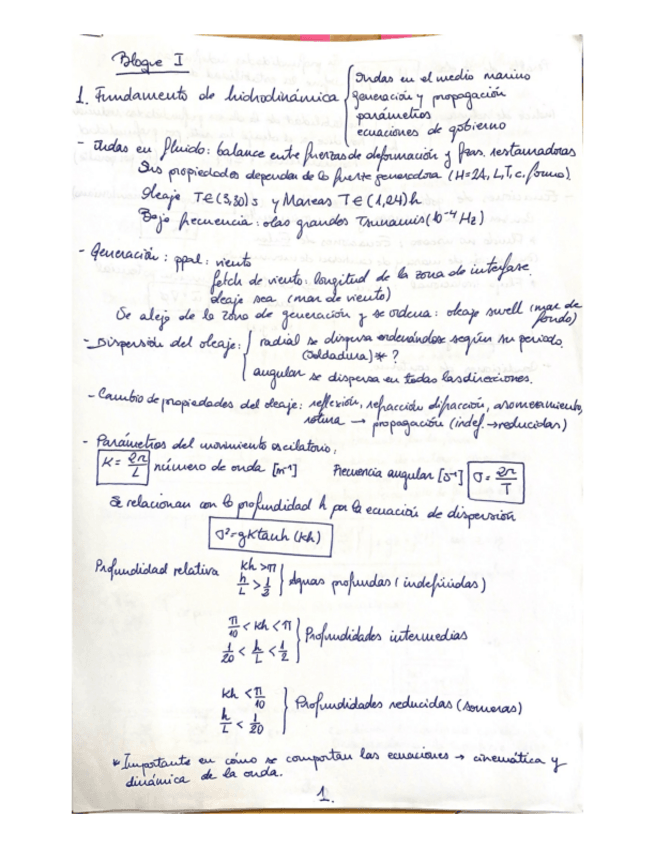 Bloque I
1. Fundamento de hidrodinámica
Ondas en el medio marino
generación y propagación
parámetros
ecuaciones de gobierno
- Ondas en fluido: balance entre fuerzas de deformación y fzas. restauradoras
Sus propiedades dependen de la fuente generadora (H=2A, L, T, c, forma).
Oleaje T∈(3,30)s y Mareas T∈(1,24)h
Bajo frecuencia: olas grandes Tsunamis (10⁻⁴ Hz)
- Generación: ppal: viento
fetch de viento: longitud de la zona de interfase.
oleaje sea (mar de viento)
Se aleja de la zona de generación y se ordena: oleaje swell (mar de fondo)
- Dispersión del oleaje:
radial se dispersa ordenándose según su periodo.
(Soldadura)* ?
angular se dispersa en todas las direcciones.
- Cambio de propiedades del oleaje: reflexión, refracción difracción, asomeramiento,
rotura → propagación (indef. → reducidas)
- Parámetros del movimiento oscilatorio:
K = 2π/L número de onda [m⁻¹] Frecuencia angular [s⁻¹] σ = 2π/T
Se relacionan con la profundidad h por la ecuación de dispersión
σ² = gKtanh(kh)
Profundidad relativa
kh > π
h/L > 1/2
Aguas profundas (indefinidas)
π/10 < kh < π
1/20 < h/L < 1/2
Profundidades intermedias
kh < π/10
h/L < 1/20
Profundidades reducidas (someras)
* Importante en cómo se comportan las ecuaciones → cinemática y
dinámica de la onda.
1.